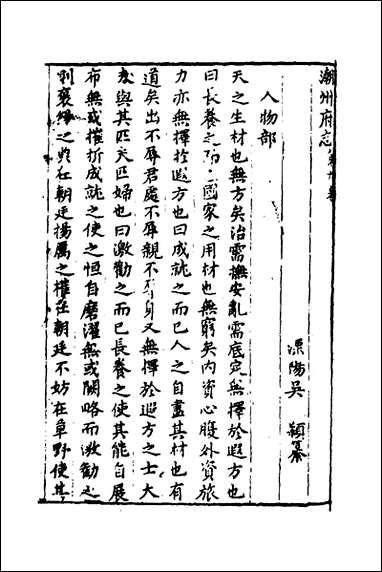 潮州府志
溧陽吳 穎纂
人物部
天之生材也無方矣治需撫安亂需底定無擇於遐方也
曰長養之而已國家之用材也無窮矣內資心腹外資旅
力亦無擇於遐方也曰成就之而已人之自盡其材也有
道矣出不辱君處不辱親不辱身又無擇於遐方之士大
夫與其匹夫匹婦也曰激勸之而已長養之使其能自展
布無或摧折成就之使之恒自磨濯無或闕略而激勸
則褒之在朝廷揚厲之權在朝廷不妨在草野使其